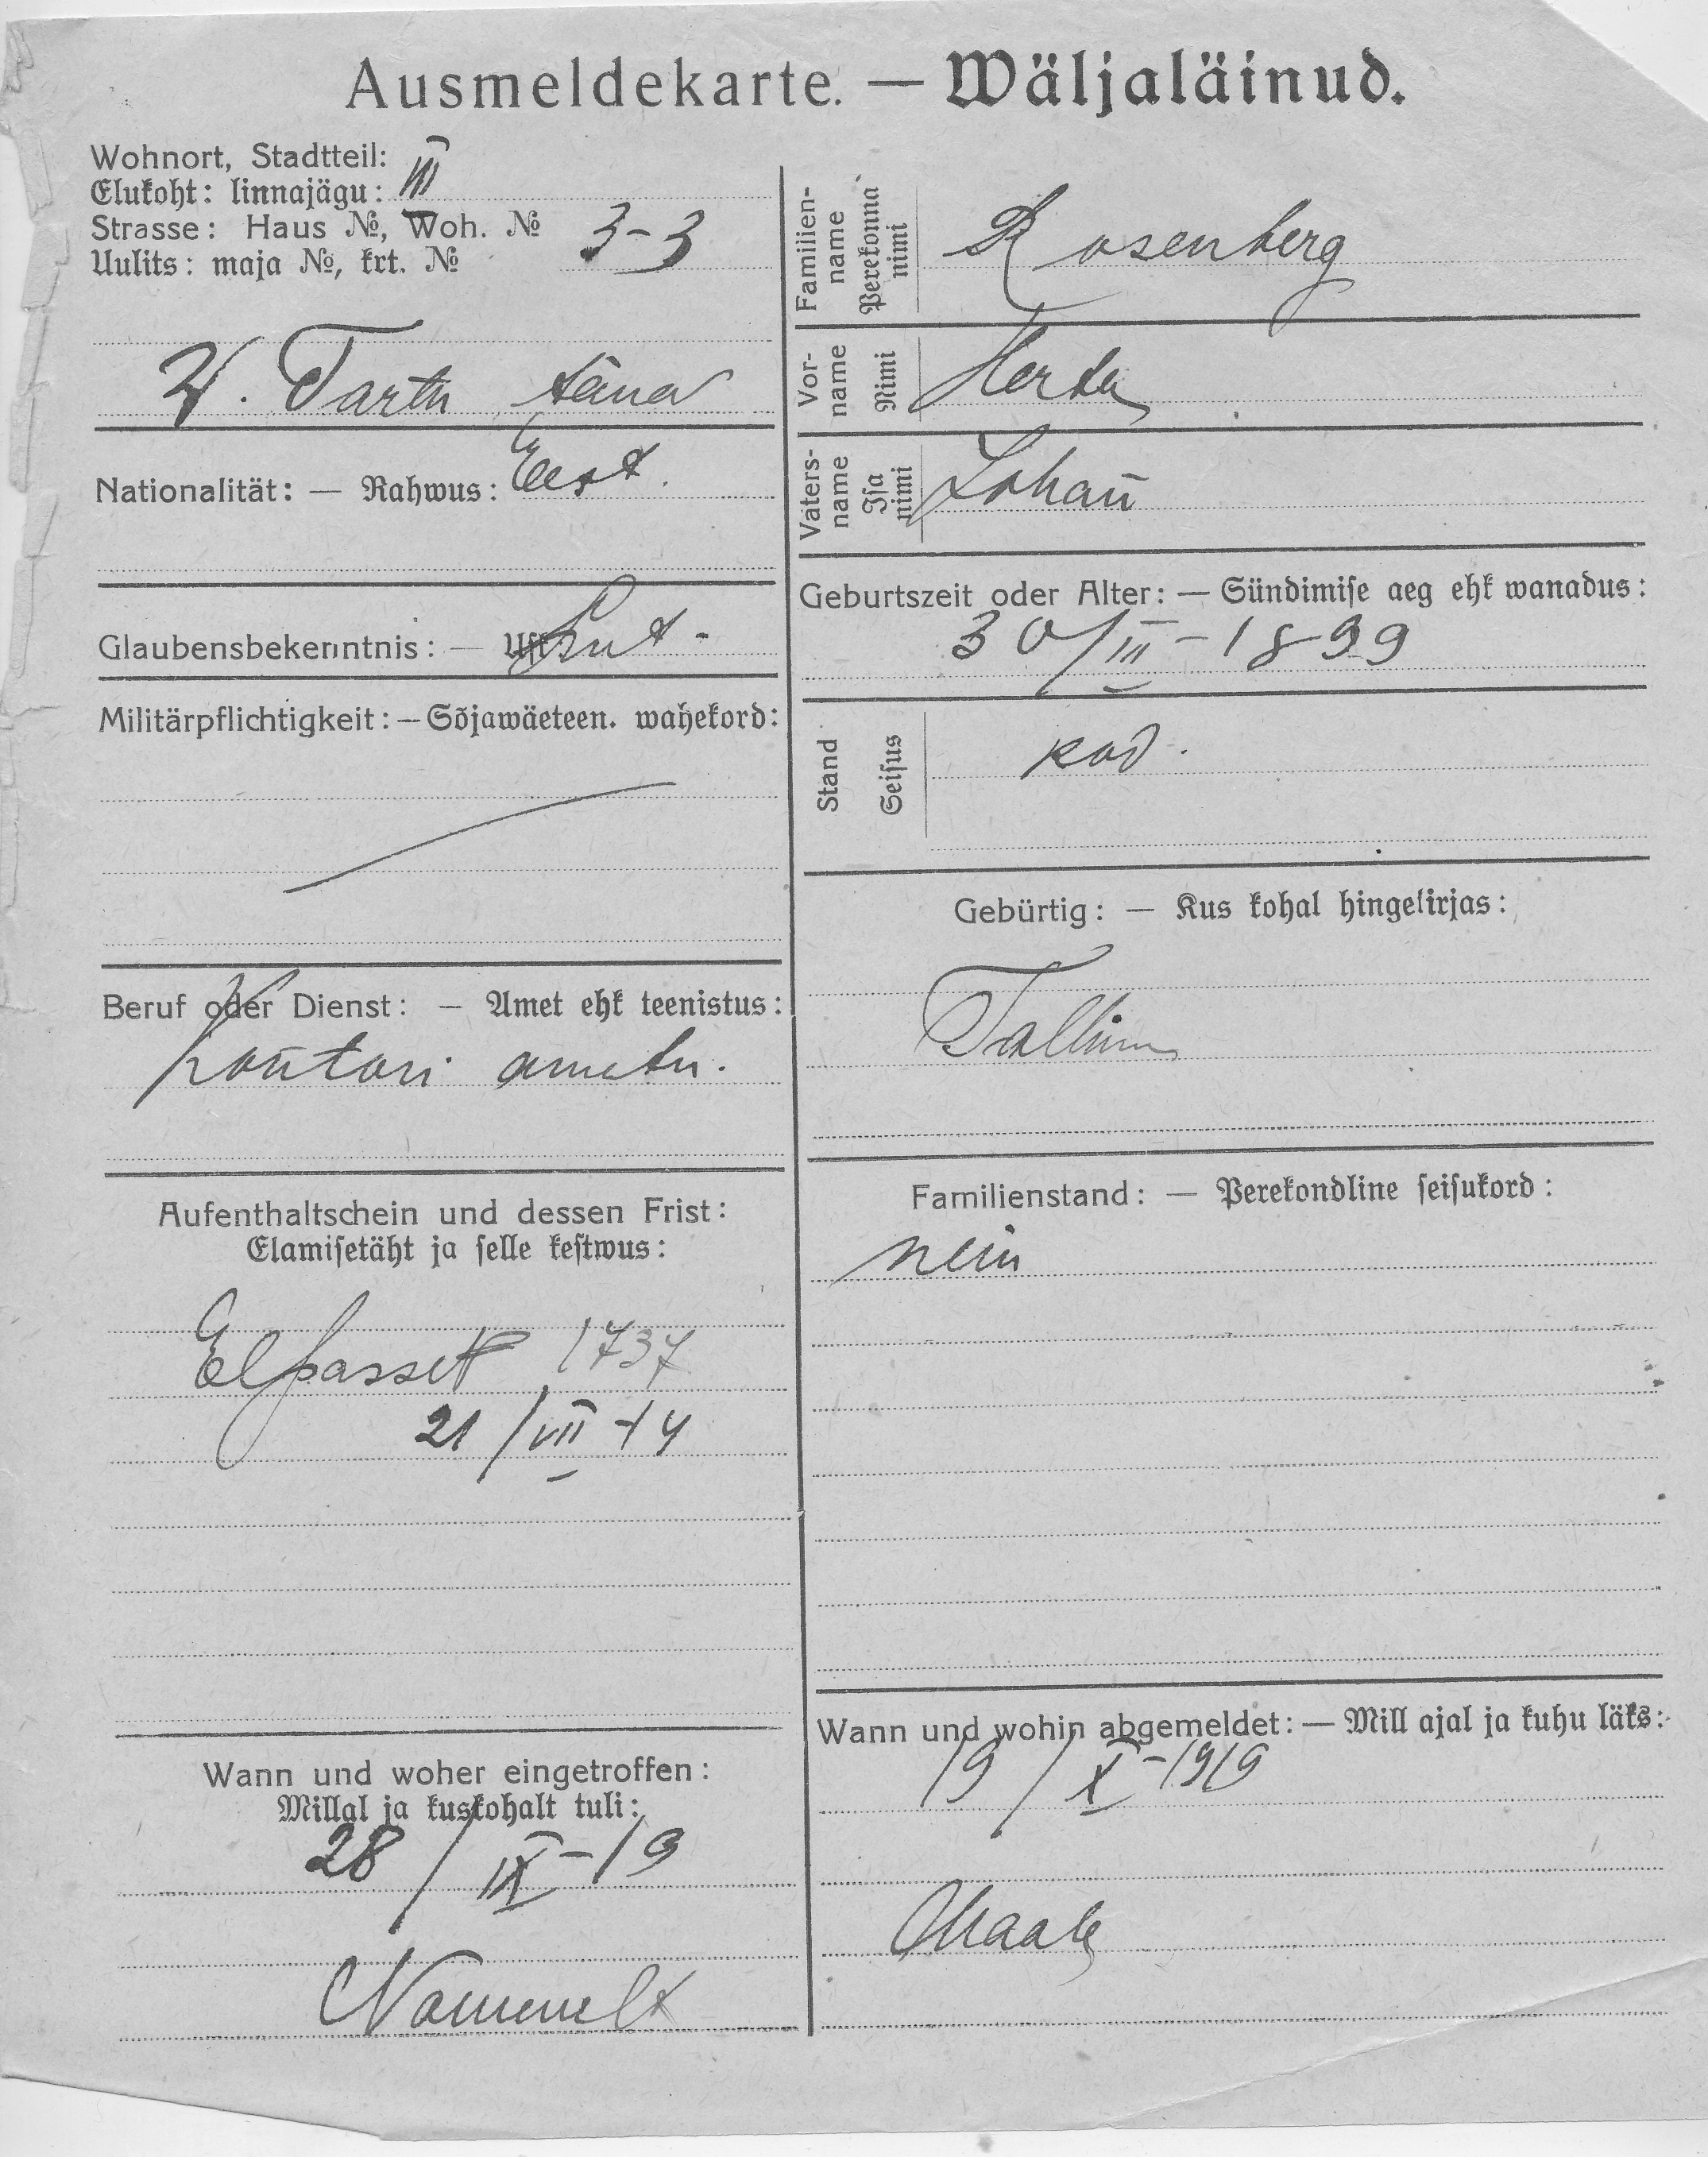 Ausmeldekarte. — Wäljaläinud.
Wohnort, Stadtteil:
Elukoht: linnajägu: III
Strasse: Haus №, Woh. №
Uulits: maja №, krt. № 3-3
W. Tartu tänav
Nationalität: — Rahwus: Eest.
Glaubensbekenntnis: — Usk Lut-
Militärpflichtigkeit: — Sõjawäeteen. wahekord:
Beruf oder Dienst: — Amet ehk teenistus:
Kontori ametn.
Aufenthaltschein und dessen Frist:
Elamisetäht ja selle kestwus:
Elpasset 1737
21/VII 14
Wann und woher eingetroffen:
Millal ja kuskohalt tuli:
28/IX-19
Nõmmelt
Familien-
name
Perekonna
nimi
Rosenberg
Vor-
name
Nimi
Herta
Vaters-
name
Isa
nimi
Johan̄
Geburtszeit oder Alter: — Sündimise aeg ehk wanadus:
30/III-1899
Stand
Seisus
kod.
Gebürtig: — Kus kohal hingekirjas:
Tallinn
Familienstand: — Perekondline seisukord:
nein
Wann und wohin abgemeldet: — Mill ajal ja kuhu läks:
19/X-1919
Maale